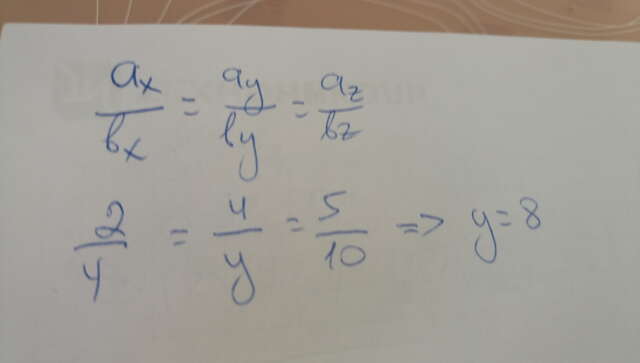 ax/bx = ay/by = az/bz
2/4 = 4/y = 5/10 => y=8